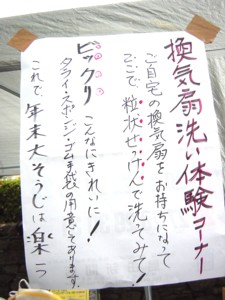 換気扇洗い体験コーナー
ご自宅の換気扇をお持ちになって
ここで、粒状せっけんで洗ってみて!
ビックリ こんなにきれいに!
タライ・スポンジ・ゴム手袋の用意してあります
これで年末大そうじは楽ラク